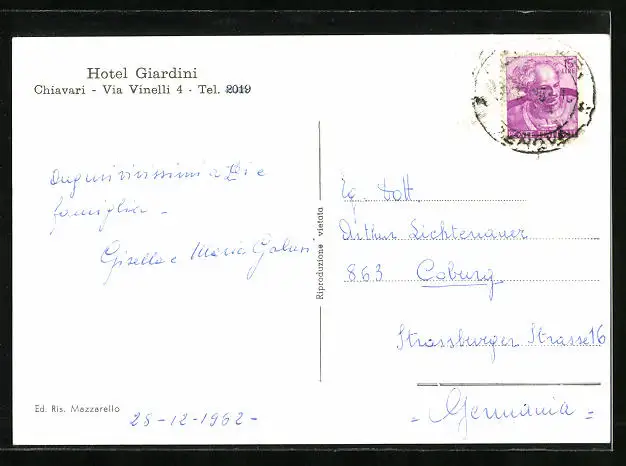 Hotel Giardini
Chiavari - Via Vinelli 4 - Tel. 2019
15
LIRE
GENOVA
Auguri vivissimi a Lei e
famiglia -
Gisella e Maria
Riproduzione vietata
Eg. Dott.
Arthur Lichtenauer
863 Coburg
Strassburger Strasse 16
= Germania =
Ed. Ris. Mazzarello
28-12-1962-